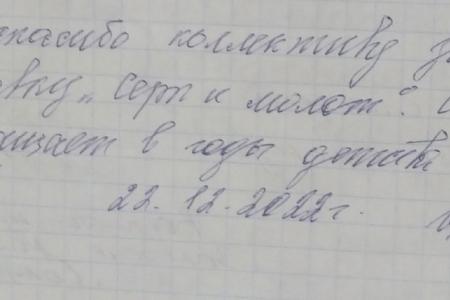 спасибо коллективу за
вку „Серп и молот".
ищает в годы детства
22.12.2022г.